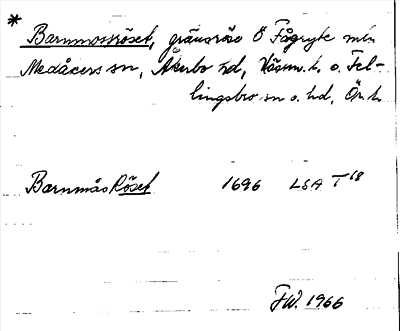 *
Barnmossröset, gränsröse Ö Fågryte mln
Medåkers sn, Åkerbo hd, Västm. l. o. Fel-
lingsbro sn o. hd, Ör. l.
Barnmås Röset 1696 LSA T 18
FW. 1966